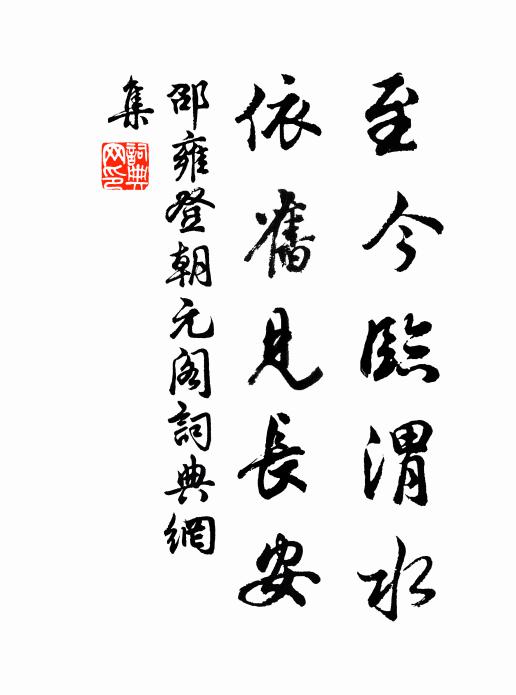 至今臨渭水
依舊見長安
邵雍登朝元閣詞典網
集
詞典
网印